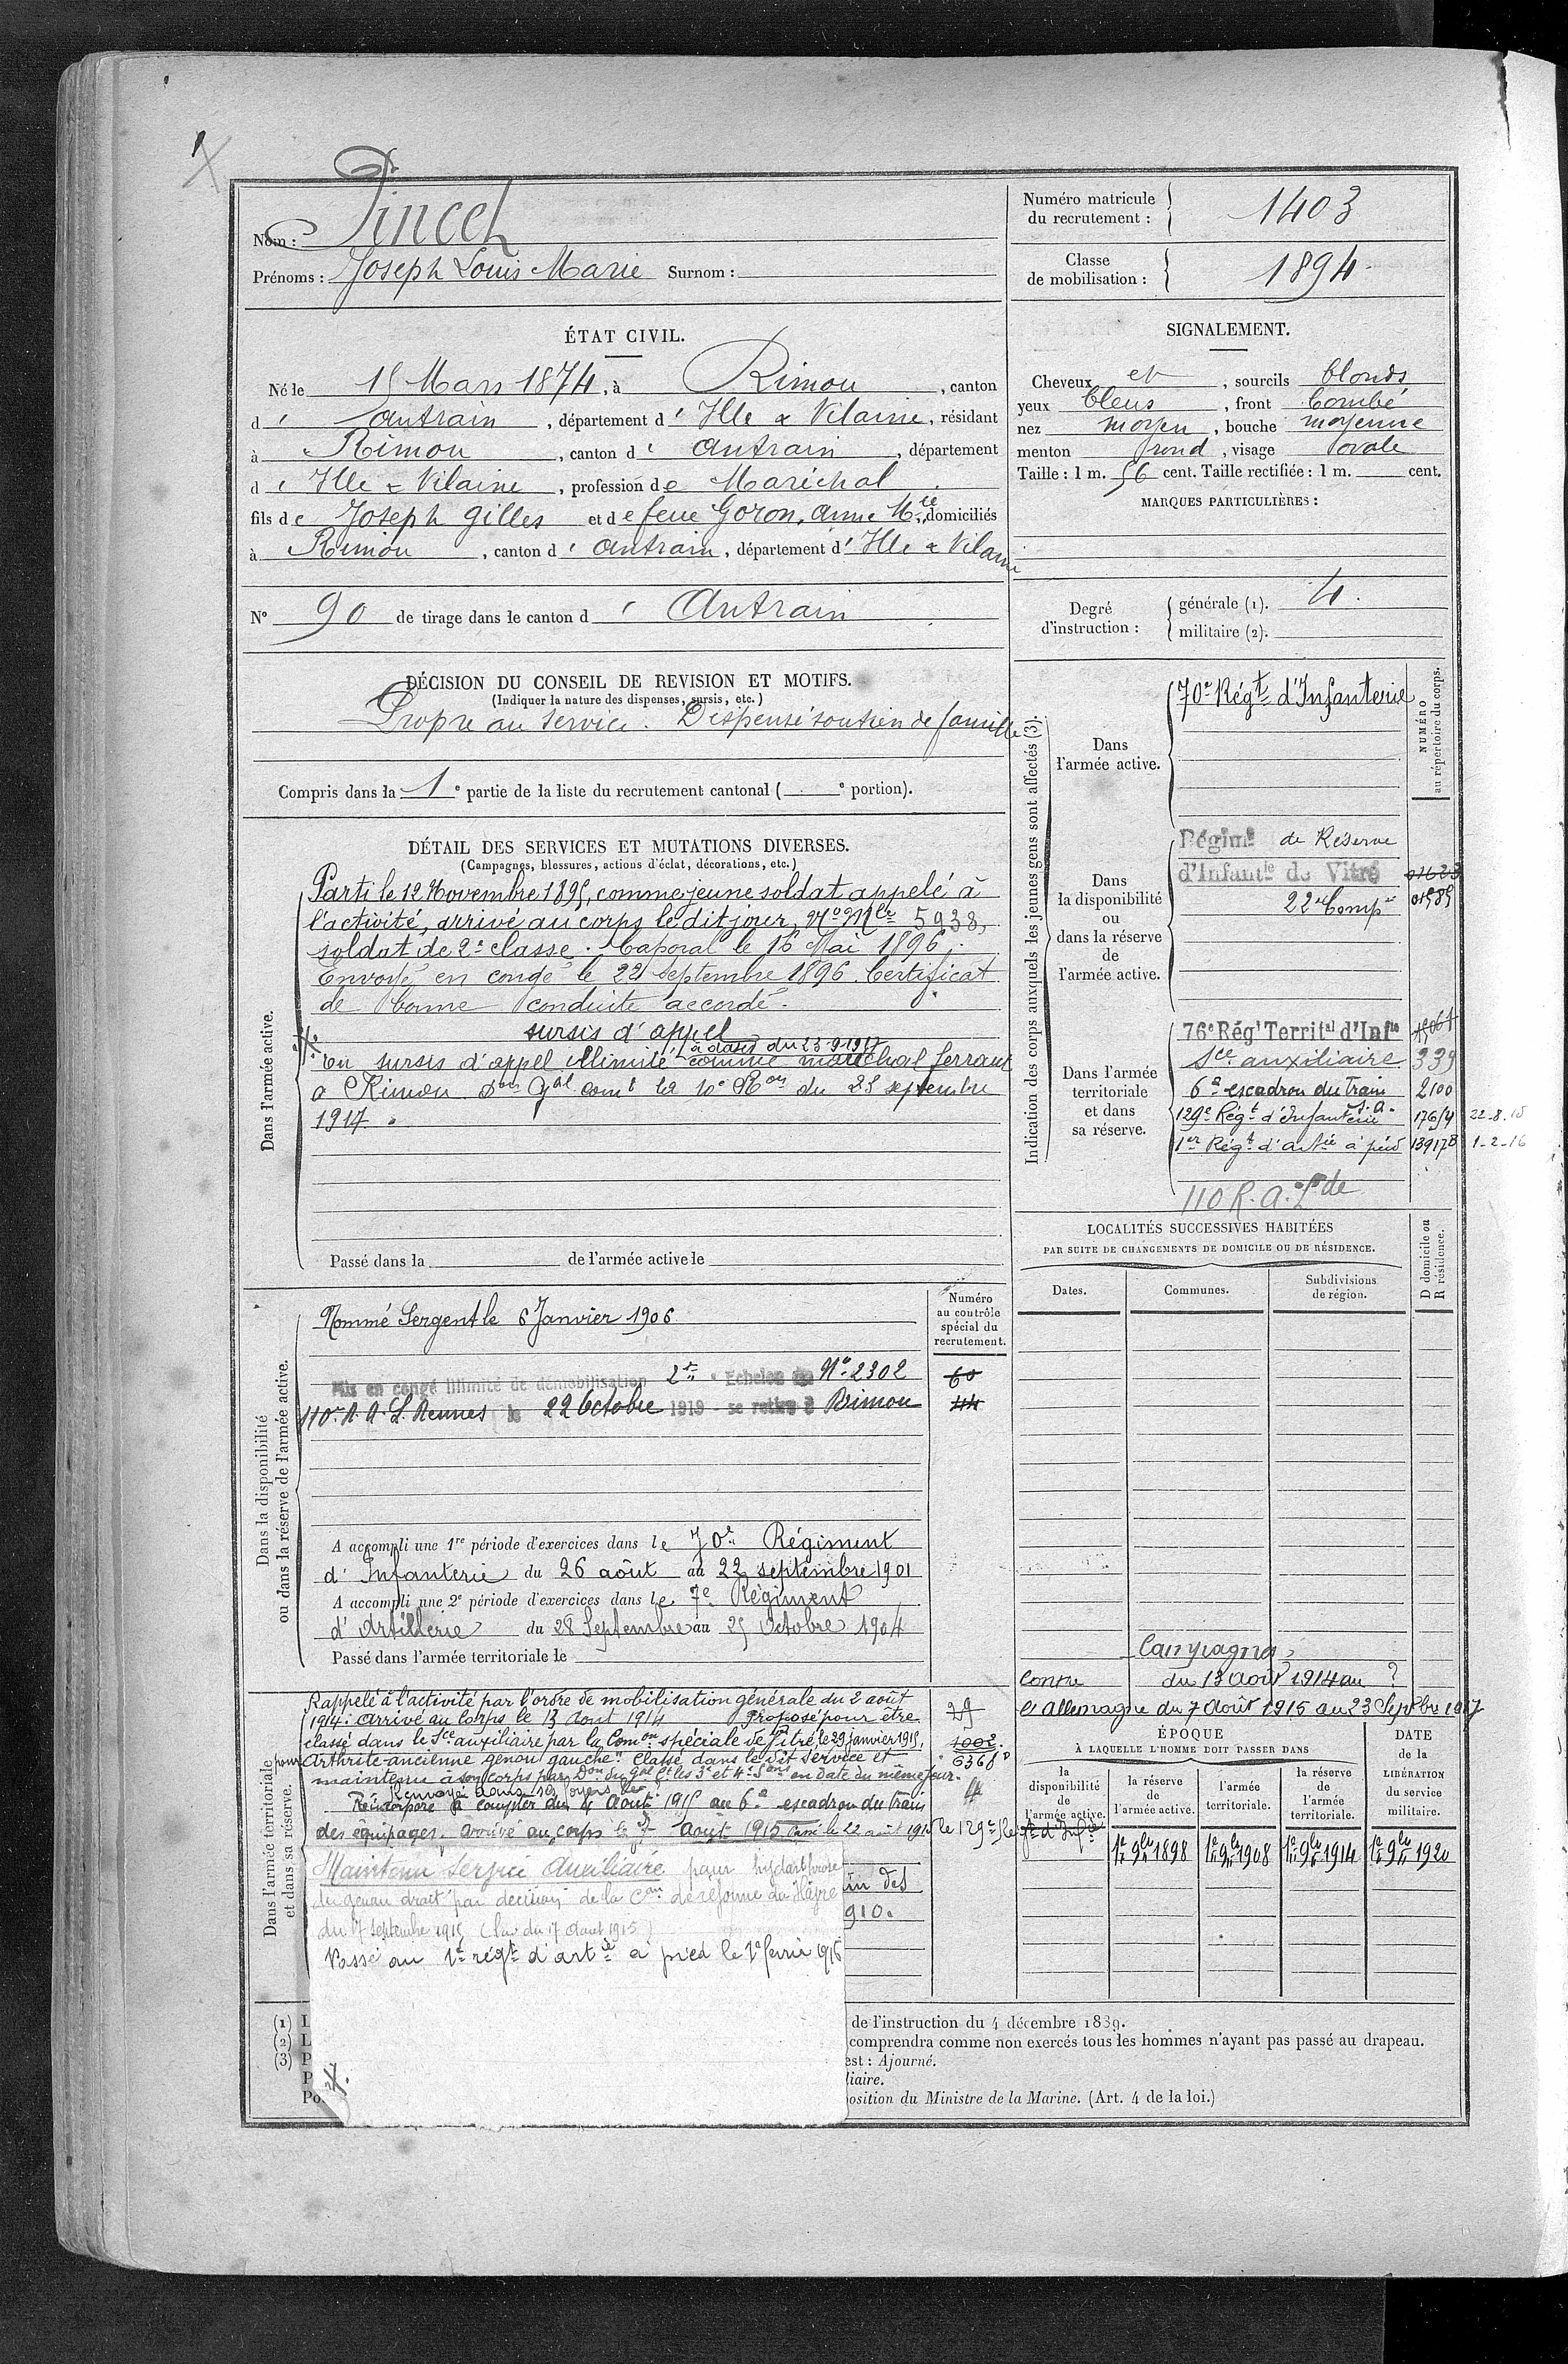 Nom : Pincel
Prénoms : Joseph Louis Marie Surnom :
Numéro matricule du recrutement : 1403
Classe de mobilisation : 1894
ÉTAT CIVIL.
Né le 15 Mars 1874, à Rimou, canton
d' Antrain, département d' Ille & Vilaine, résidant
à Rimou, canton d' Antrain, département
d' Ille & Vilaine, profession de Maréchal
fils de Joseph Gilles et de feue Goron, Anne Mie, domiciliés
à Rimou, canton d' Antrain, département d' Ille & Vilaine
N° 90 de tirage dans le canton d' Antrain
SIGNALEMENT.
Cheveux et, sourcils blonds
yeux bleus, front bombé
nez moyen, bouche moyenne
menton rond, visage ovale
Taille : 1 m. 56 cent. Taille rectifiée : 1 m. cent.
MARQUES PARTICULIÈRES :
Degré d'instruction : générale (1). 4.
militaire (2).
DÉCISION DU CONSEIL DE REVISION ET MOTIFS.
(Indiquer la nature des dispenses, sursis, etc.)
Propre au service. Dispensé soutien de famille
Compris dans la 1e partie de la liste du recrutement cantonal ( e portion).
DÉTAIL DES SERVICES ET MUTATIONS DIVERSES.
(Campagnes, blessures, actions d'éclat, décorations, etc.)
Dans l'armée active.
Parti le 12 Novembre 1895, comme jeune soldat appelé à
l'activité, arrivé au corps le dit jour, No Mle 5938,
soldat de 2e classe. Caporal le 16 Mai 1896.
Envoyé en congé le 22 septembre 1896. Certificat
de bonne conduite accordé.
sursis d'appel
à dater du 23-9-1917
En sursis d'appel illimité comme maréchal ferrant
à Rimou Don Gal Comt la 10e Ron du 25 septembre
1917.
Passé dans la de l'armée active le
Indication des corps auxquels les jeunes gens sont affectés (3).
NUMÉRO au répertoire du corps.
Dans l'armée active.
70e Régt d'Infanterie
Dans la disponibilité ou dans la réserve de l'armée active.
Régimt de Réserve
d'Infantie de Vitré
22e Compie 01585
Dans l'armée territoriale et dans sa réserve.
76e Régt Territal d'Infie
Sce auxiliaire 339
6e escadron du train 2100
129e Régt d'Infanterie S.A. 17654 22-8-15
1er Régt d'Artie à pied 139178 1-2-16
110 R.A. Lde
LOCALITÉS SUCCESSIVES HABITÉES
PAR SUITE DE CHANGEMENTS DE DOMICILE OU DE RÉSIDENCE.
Dates. Communes. Subdivisions de région. D domicile ou R résidence.
Dans la disponibilité ou dans la réserve de l'armée active.
Numéro au contrôle spécial du recrutement.
Nommé Sergent le 6 Janvier 1906
Mis en congé illimité de démobilisation 2e Echelon No 2302
60
110e R.A.L. Rennes le 22 Octobre 1919 - se retire à Rimou
44
A accompli une 1re période d'exercices dans le 70e Régiment
d'Infanterie du 26 août au 22 septembre 1901
A accompli une 2e période d'exercices dans le 7e Régiment
d'Artillerie du 28 Septembre au 25 Octobre 1904
Passé dans l'armée territoriale le
Campagnes
Contre du 13 août 1914 au ?
l'Allemagne du 7 Août 1915 au 23 Septbre 1917
Dans l'armée territoriale et dans sa réserve.
Rappelé à l'activité par l'ordre de mobilisation générale du 2 août
1914. Arrivé au Corps le 13 Aout 1914 Proposé pour être
classé dans le Sce auxiliaire par la Comon spéciale de Vitré, le 29 janvier 1915,
pour "Arthrite ancienne genou gauche" Classé dans le dit service et
maintenu à son corps par Don du Gal Ct les 3e et 4e Sons en date du même jour.
Renvoyé dans ses foyers le
Réincorporé à compter du 4 Août 1915 au 6e escadron du train
des équipages. Arrivé au corps le 7 Août 1915 Passé le 22 août 1915 le 129e Régt d'Infie
Maintenu Service Auxiliaire pour hydarthrose
du genou droit par décision de la Con de réforme du Hâvre
du 17 septembre 1915 (Loi du 17 Aout 1915)
Passé au 1er régt d'artie à pied le 1er fevrier 1916
in des
910.
1002
6368
ÉPOQUE
À LAQUELLE L'HOMME DOIT PASSER DANS
DATE de la LIBÉRATION du service militaire.
la disponibilité de l'armée active.
la réserve de l'armée active.
l'armée territoriale.
la réserve de l'armée territoriale.
1er 9bre 1898 1er 9bre 1908 1er 9bre 1914 1er 9bre 1920
(1) L
de l'instruction du 4 décembre 1889.
(2) L
comprendra comme non exercés tous les hommes n'ayant pas passé au drapeau.
(3) P
est : Ajourné.
P
liaire.
Po
position du Ministre de la Marine. (Art. 4 de la loi.)